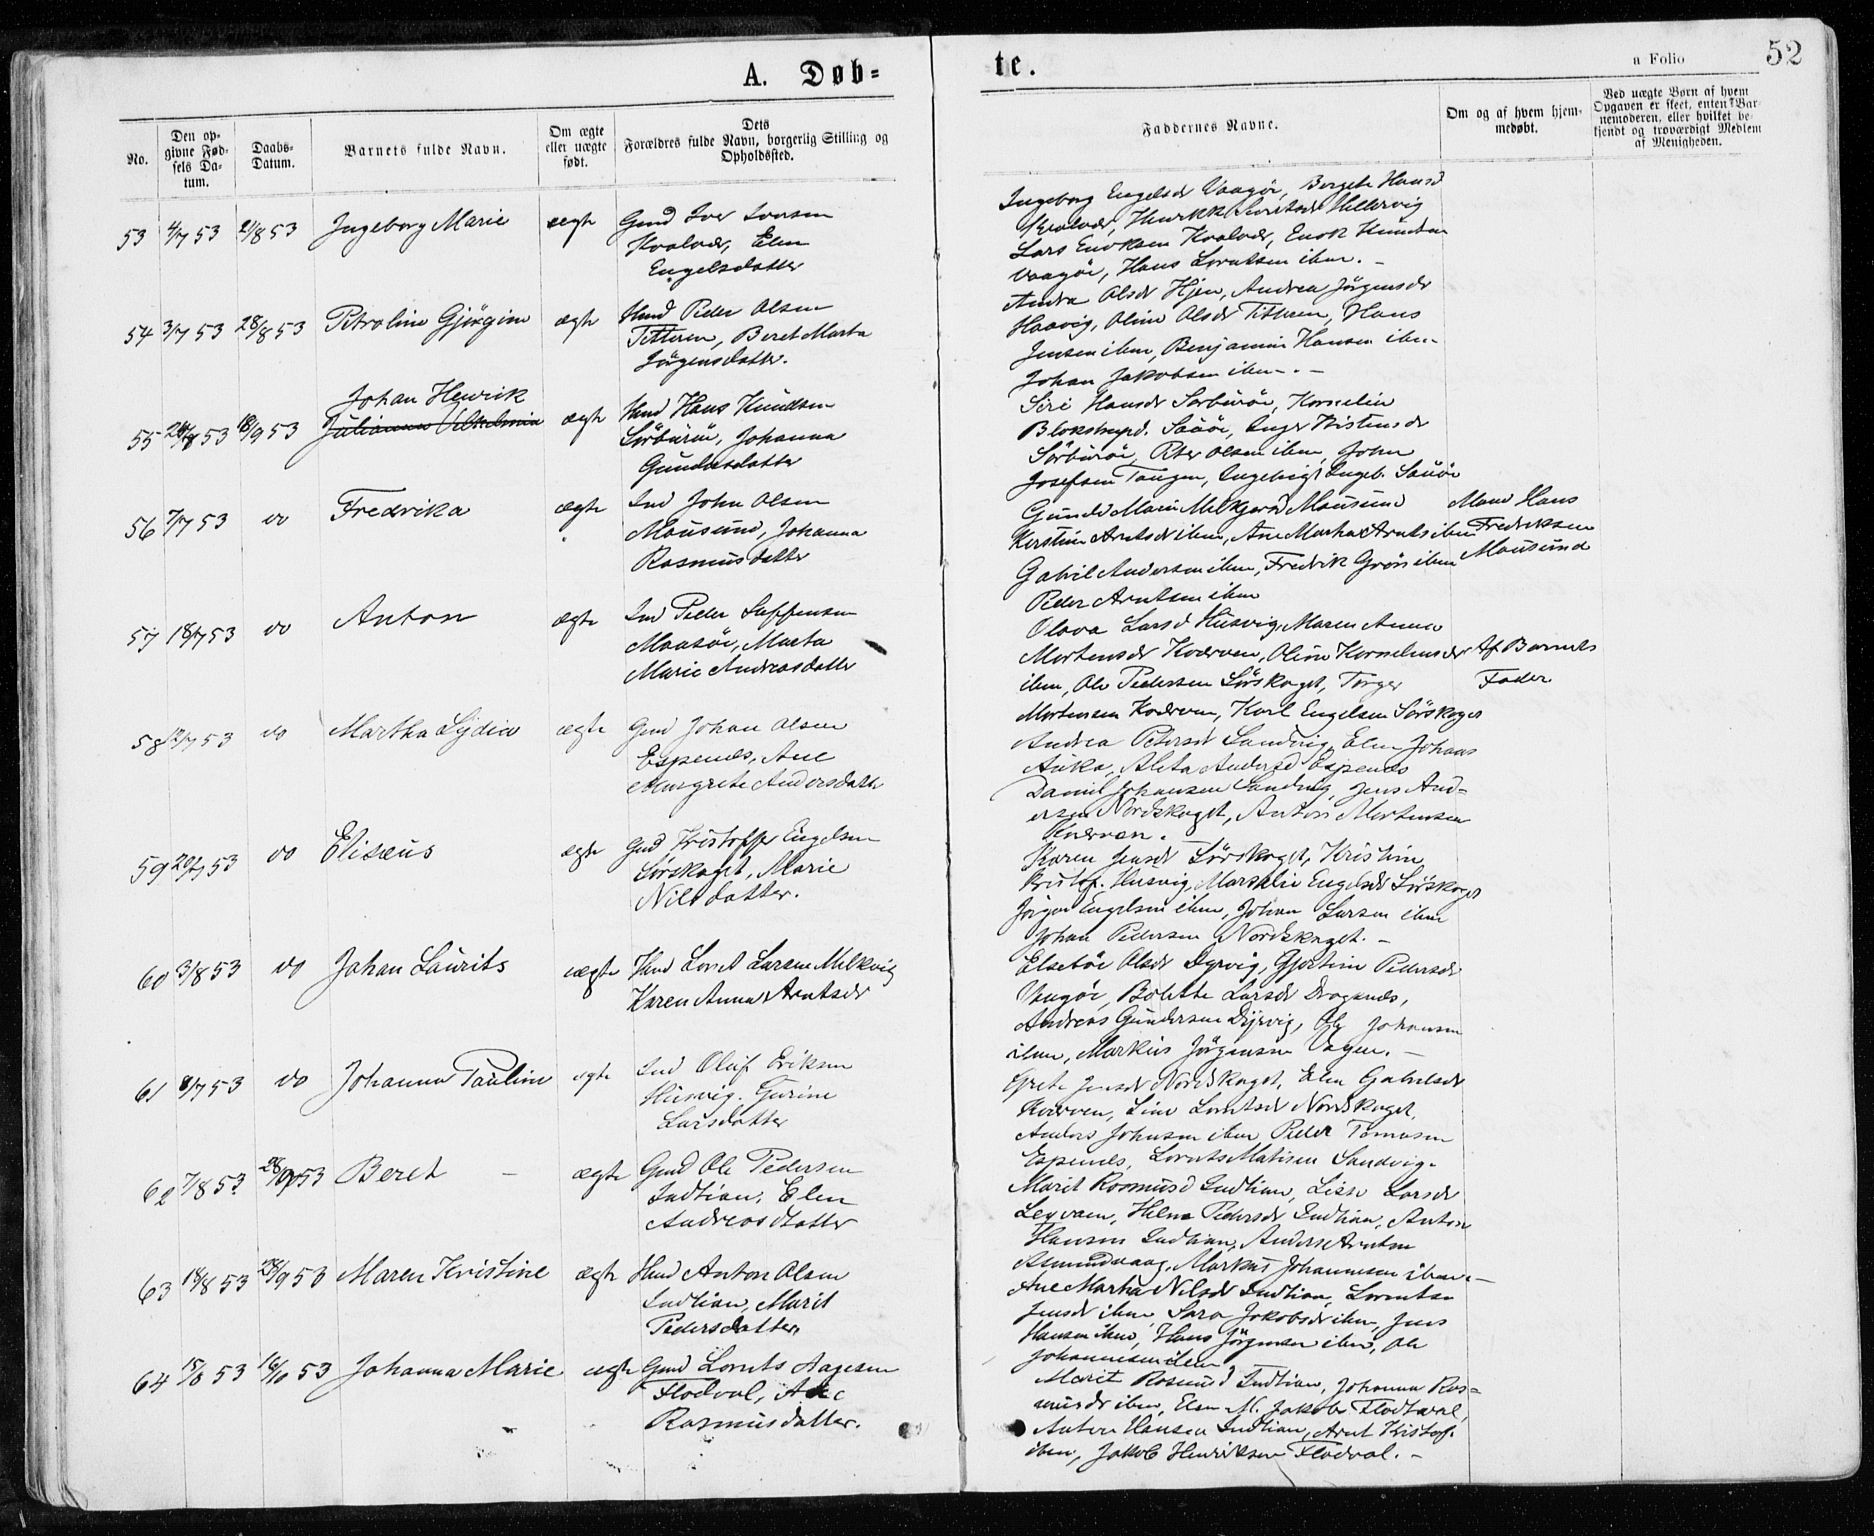 A. Døb-
te.
a Folio
52
No.
Den op-
givne Fød-
sels Da-
tum.
Daabs-
Datum.
Barnets fulde Navn.
Om ægte
eller uægte
født.
Dets
Forældres fulde Navn, borgerlig Stilling og
Opholdssted.
Faddernes Navne.
Om og af hvem hjem-
medøbt.
Ved uægte Børn af hvem
Opgaven er skeet, enten Bar-
nemoderen, eller hvilket be-
kjendt og troværdigt Medlem
af Menigheden.
53 4/7 53 21/8 53 Ingeborg Marie ægte
Kvalvær, Elen
Engelsdatter
Ingeborg Engelsd Vaagøi, Bergete Hansd
Lars Enoksen Kvalvær, Enok Knudsen
Vaagøi, Hans Lorntsen ibm. -
54 3/7 53 28/8 53 Petroline Gjørgine ægte
Husmd Peder Olsen
Titteren, Beret Marta
Jørgensdatter.
Andrea Olsdr Hjen, Andrea Jørgensdr
Haavig, Oline Olsdr Titteren, Hans
Jensen ibm, Benjamin Hansen ibm
Johan Jakobsen ibm. -
Johan Henrik
55 18/9 53 Julianna Vilhelmina ægte
Husmd Hans Knudsen
Sørburøi, Johanna
Gundersdatter
Siri Hansdr Sørburøi, Kornelia
Sørburøi, Peter Olsen ibm, John
Josefsen Tangen, Ingebrigt Ingeb. Sauøi
56 7/7 53 do Fredrika ægte
Ind John Olsen
Mausund, Johanna
Rasmusdatter
Mausund
Kerstine Arntsdr ibm, Ane Martha Arnts ibm
Gabril Andersen ibm, Fredrik Grøn ibm
Peder Arntsen ibm
Hans
Fredriksen
Mausund
57 18/7 53 do Anton ægte
Ind Peder Steffensen
Maasøi, Marta
Marie Andreasdatter
Olava Larsd Husvig, Maren Anna
Mortensdr Kværven, Oline Kornelinsdr
ibm, Ole Pedersen Sørskaget, Torger
Mortensen Kværven, Karl Engelsen Sørskaget
Af Barnets
Fader
58 12/7 53 do Martha Lydia ægte
Gmd Johan Olsen
Espenes, Ane
Margrete Andersdatter
Andrea Petersdr Sandvig, Elen Johans
Aleta Andersd Espenes
Daniel Johansen Sandvig, Jens And-
ersen Nordskaget, Anton Mortensen
Kværven.
59 20/7 53 do Elisæus ægte
Gmd Kristoffer Engelsen
Sørskaget, Marie
Nilsdatter.
Karen Jensdr Sørskaget, Kristine
Kristof. Husvig, Marthe Engelsdr Sørskaget
Jørgen Engelsen ibm, Johan Larsen ibm
Johan Pedersen Nordskaget. -
60 3/8 53 do Johan Laurits uægte
Husmd Lornt Larsen Melkvig
Karen Anna Arntsdr
Elsebøe Olsdr Dyrvig, Gjertine Pedersdr
Vaagøi, Bolette Larsdr Dragsnes,
Andreas Gundersen Dyrvig, Ole Johansen
ibm, Markus Jørgensen Vagen. -
61 8/7 53 do Johanna Pauline ægte
Ind Oluf Eriksen
Husvig. Gurine
Larsdatter
Grete Jensdr Nordskaget, Elen Gabrielsdr
Kværven, Line Lorntsdr Nordskaget,
Anders Johnsen ibm, Peder Tomasen
Espenes, Lornts Matisen Sandvig.
62 7/8 53 53 Beret - ægte
Gmd Ole Pedersen
Indtian, Elen
Andreasdatter
Marit Rasmusd Indtian, Lisse Larsdr
Lervaen, Helena Pedersdr Indtian, Anton
Hansen Indtian, Anders Arntsen
Asmundvaag, Markus Johannesen ibm. -
63 18/8 53 28/9 53 Maren Kristine ægte
Husmd Anton Olsen
Indtian, Marit
Pedersdatter
Ane Martha Nilsdr Indtian, Lorntse
Jensdr ibm, Sara Jakobsdr ibm, Jens
Hansen ibm, Hans Jørgensen ibm, Ole
Johannesen ibm
64 15/8 53 16/10 53 Johanna Marie ægte
Gmd Lornts Aagesen
Flodval, Ane
Rasmusdatter.
Marit Rasmusd Indtian, Johanna Ras-
musdr ibm, Elen M. Jakobs Flodtval,
Anton Hansen Indtian, Arnt Kristof.
ibm, Jakob Henriksen Flodval. -